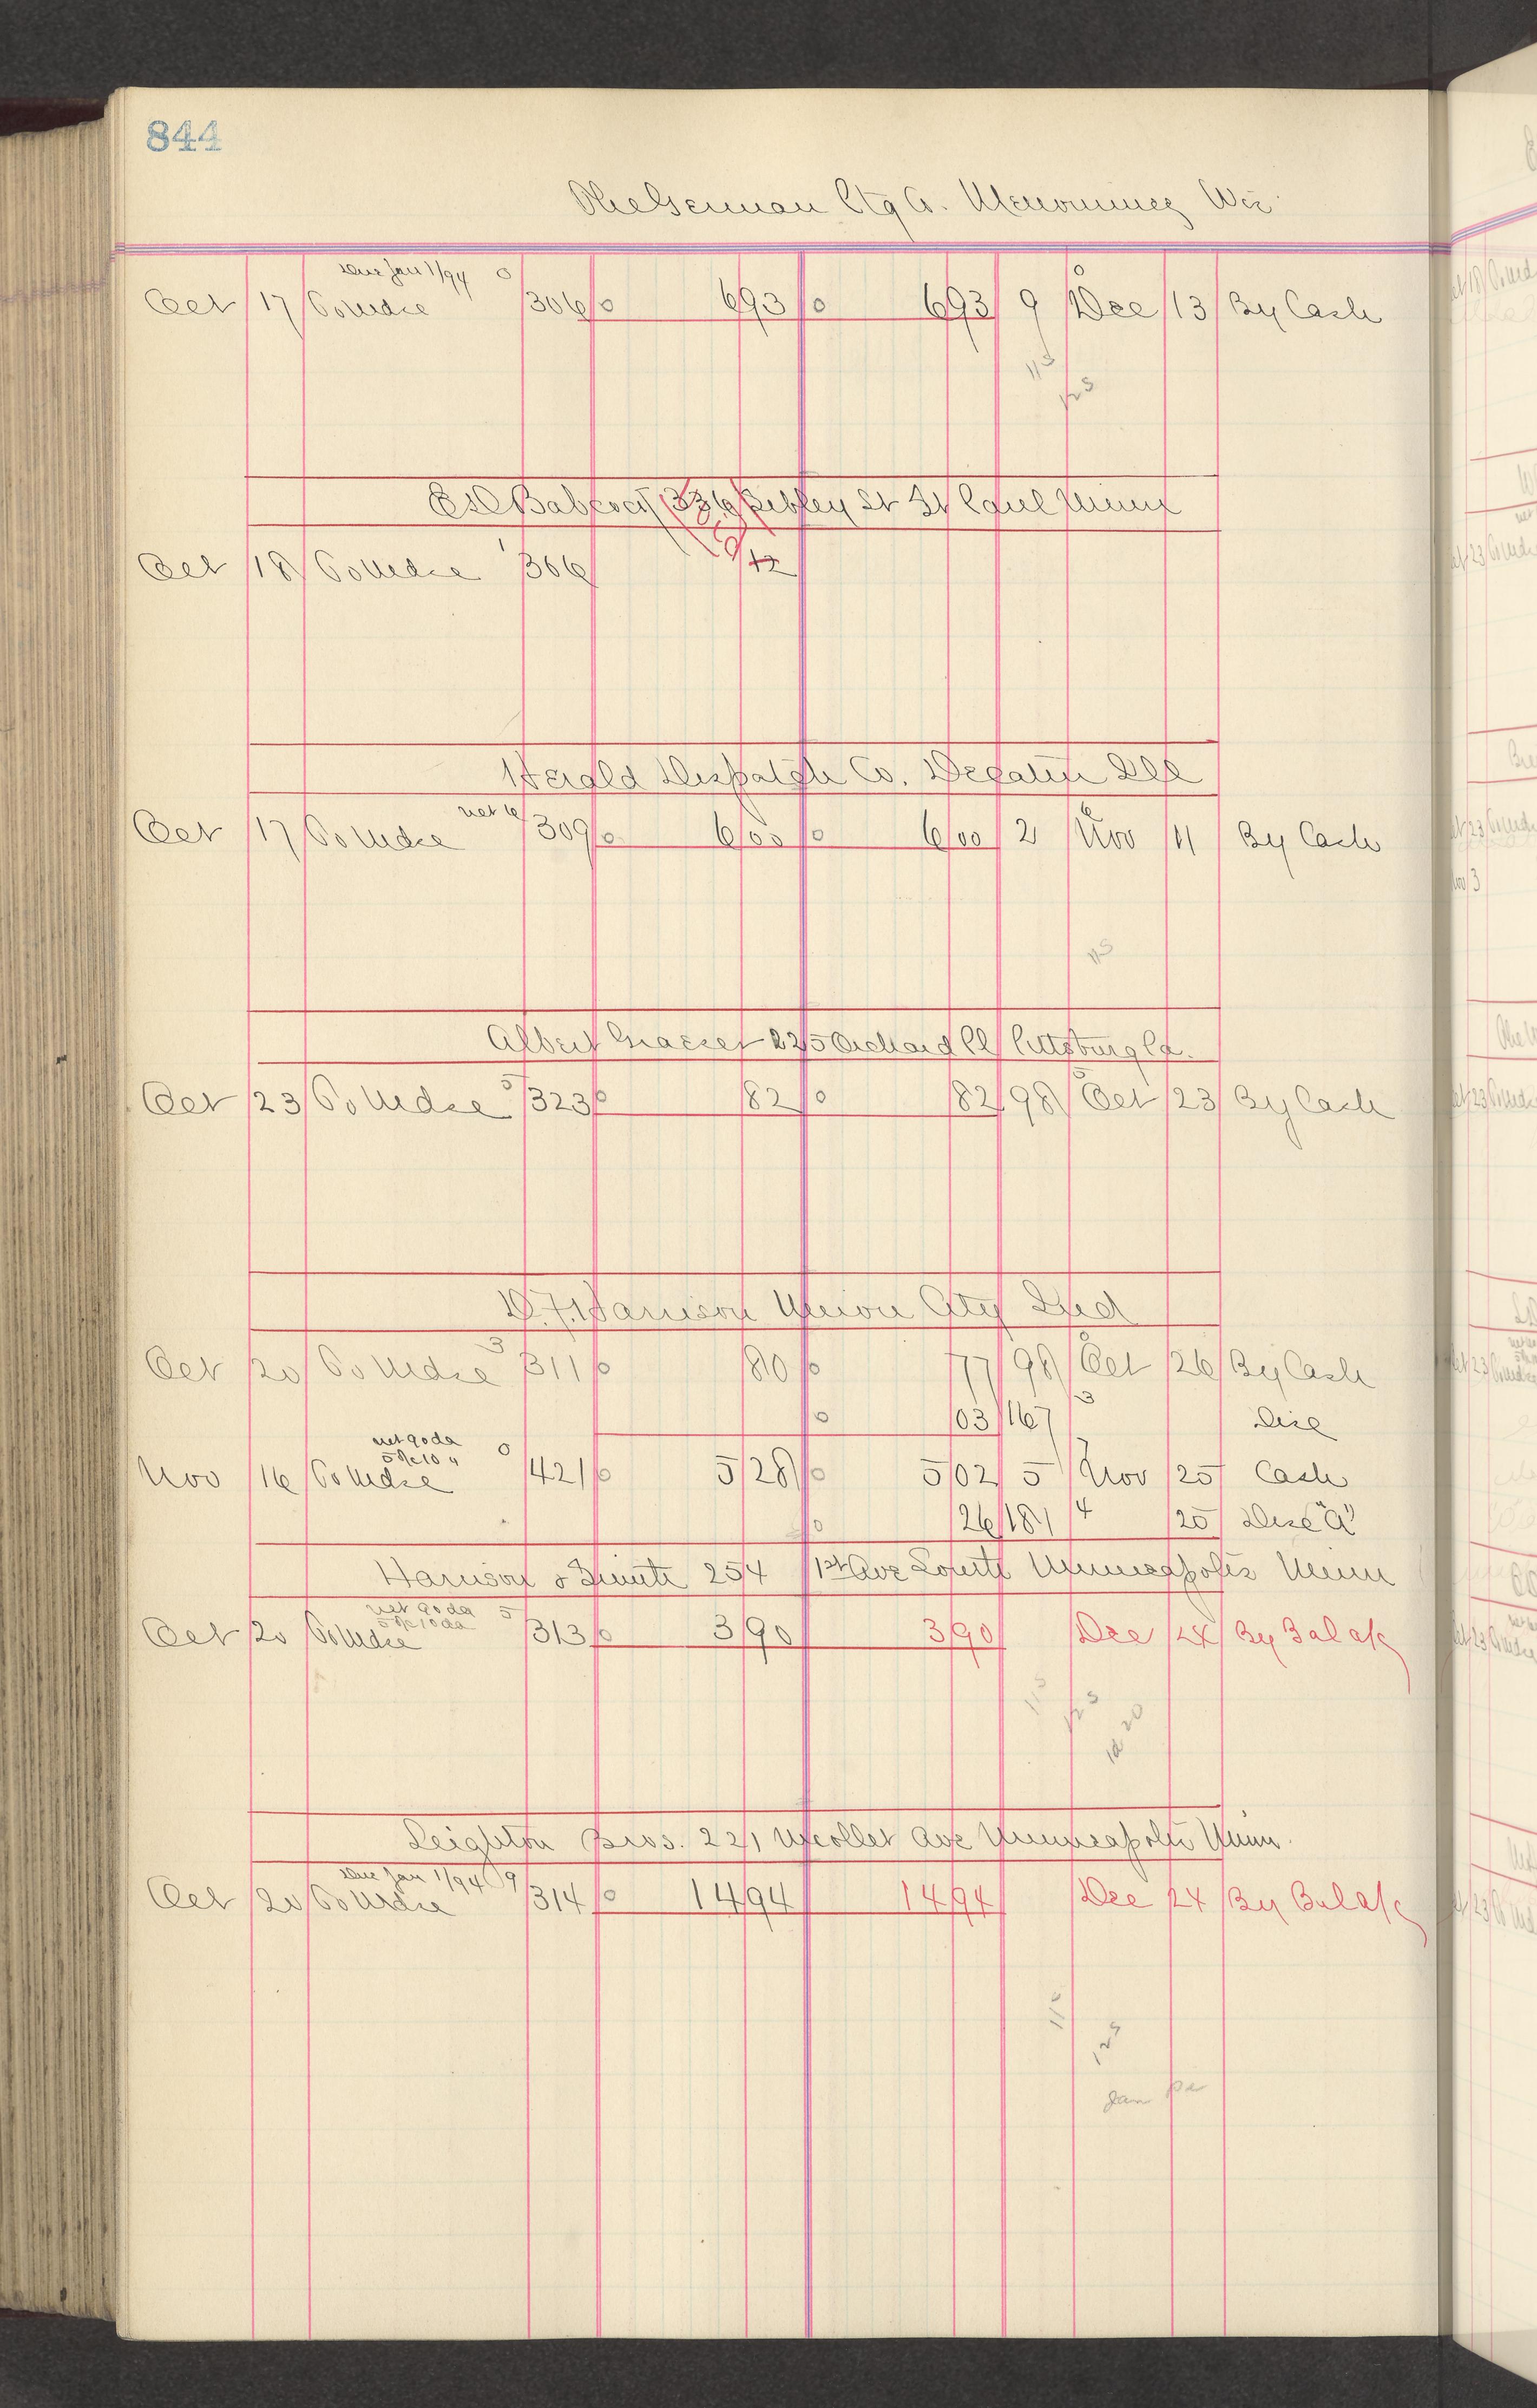 844
The German Ptg Co. Menominee Wis
Due Jan 1/94 0
Oct 17 To Mdse 306 0 693 0 693 9 Dec 13 By Cash
115
Babcock 336 Sibley St St Paul Minn
Oct 18 To Mdse 306 42
Herald Despatch Co. Decatur Ill
net
Oct 17 To Mdse 309 0 600 0 600 2 Nov 11 By Cash
Albert Grasser 225 Orchard Pl Pittsburg Pa.
Oct 23 To Mdse 5 323 0 82 0 82 98 Oct 23 By Cash
D. F. Harrison Union City Ind
Oct 20 To Mdse 3 311 0 80 0 77 98 Oct 26 By Cash
0 03 167 3 Disc
net 90 da 0
5% 10 "
Nov 16 To Mdse 421 0 528 0 502 5 Nov 25 Cash
0 26 181 4 25 Disc "A"
Harrison & 254 1st Ave South Minneapolis Minn
net 90 da 5
5% 10 da
Oct 20 To Mdse 313 0 390 390 Dec 24 By Bal a/c
Leighton Bros. 221 Nicollet Ave Minneapolis Minn.
Due Jan 1/94 9
Oct 20 To Mdse 314 0 1494 1494 Dec 24 By Bal a/c
Jan